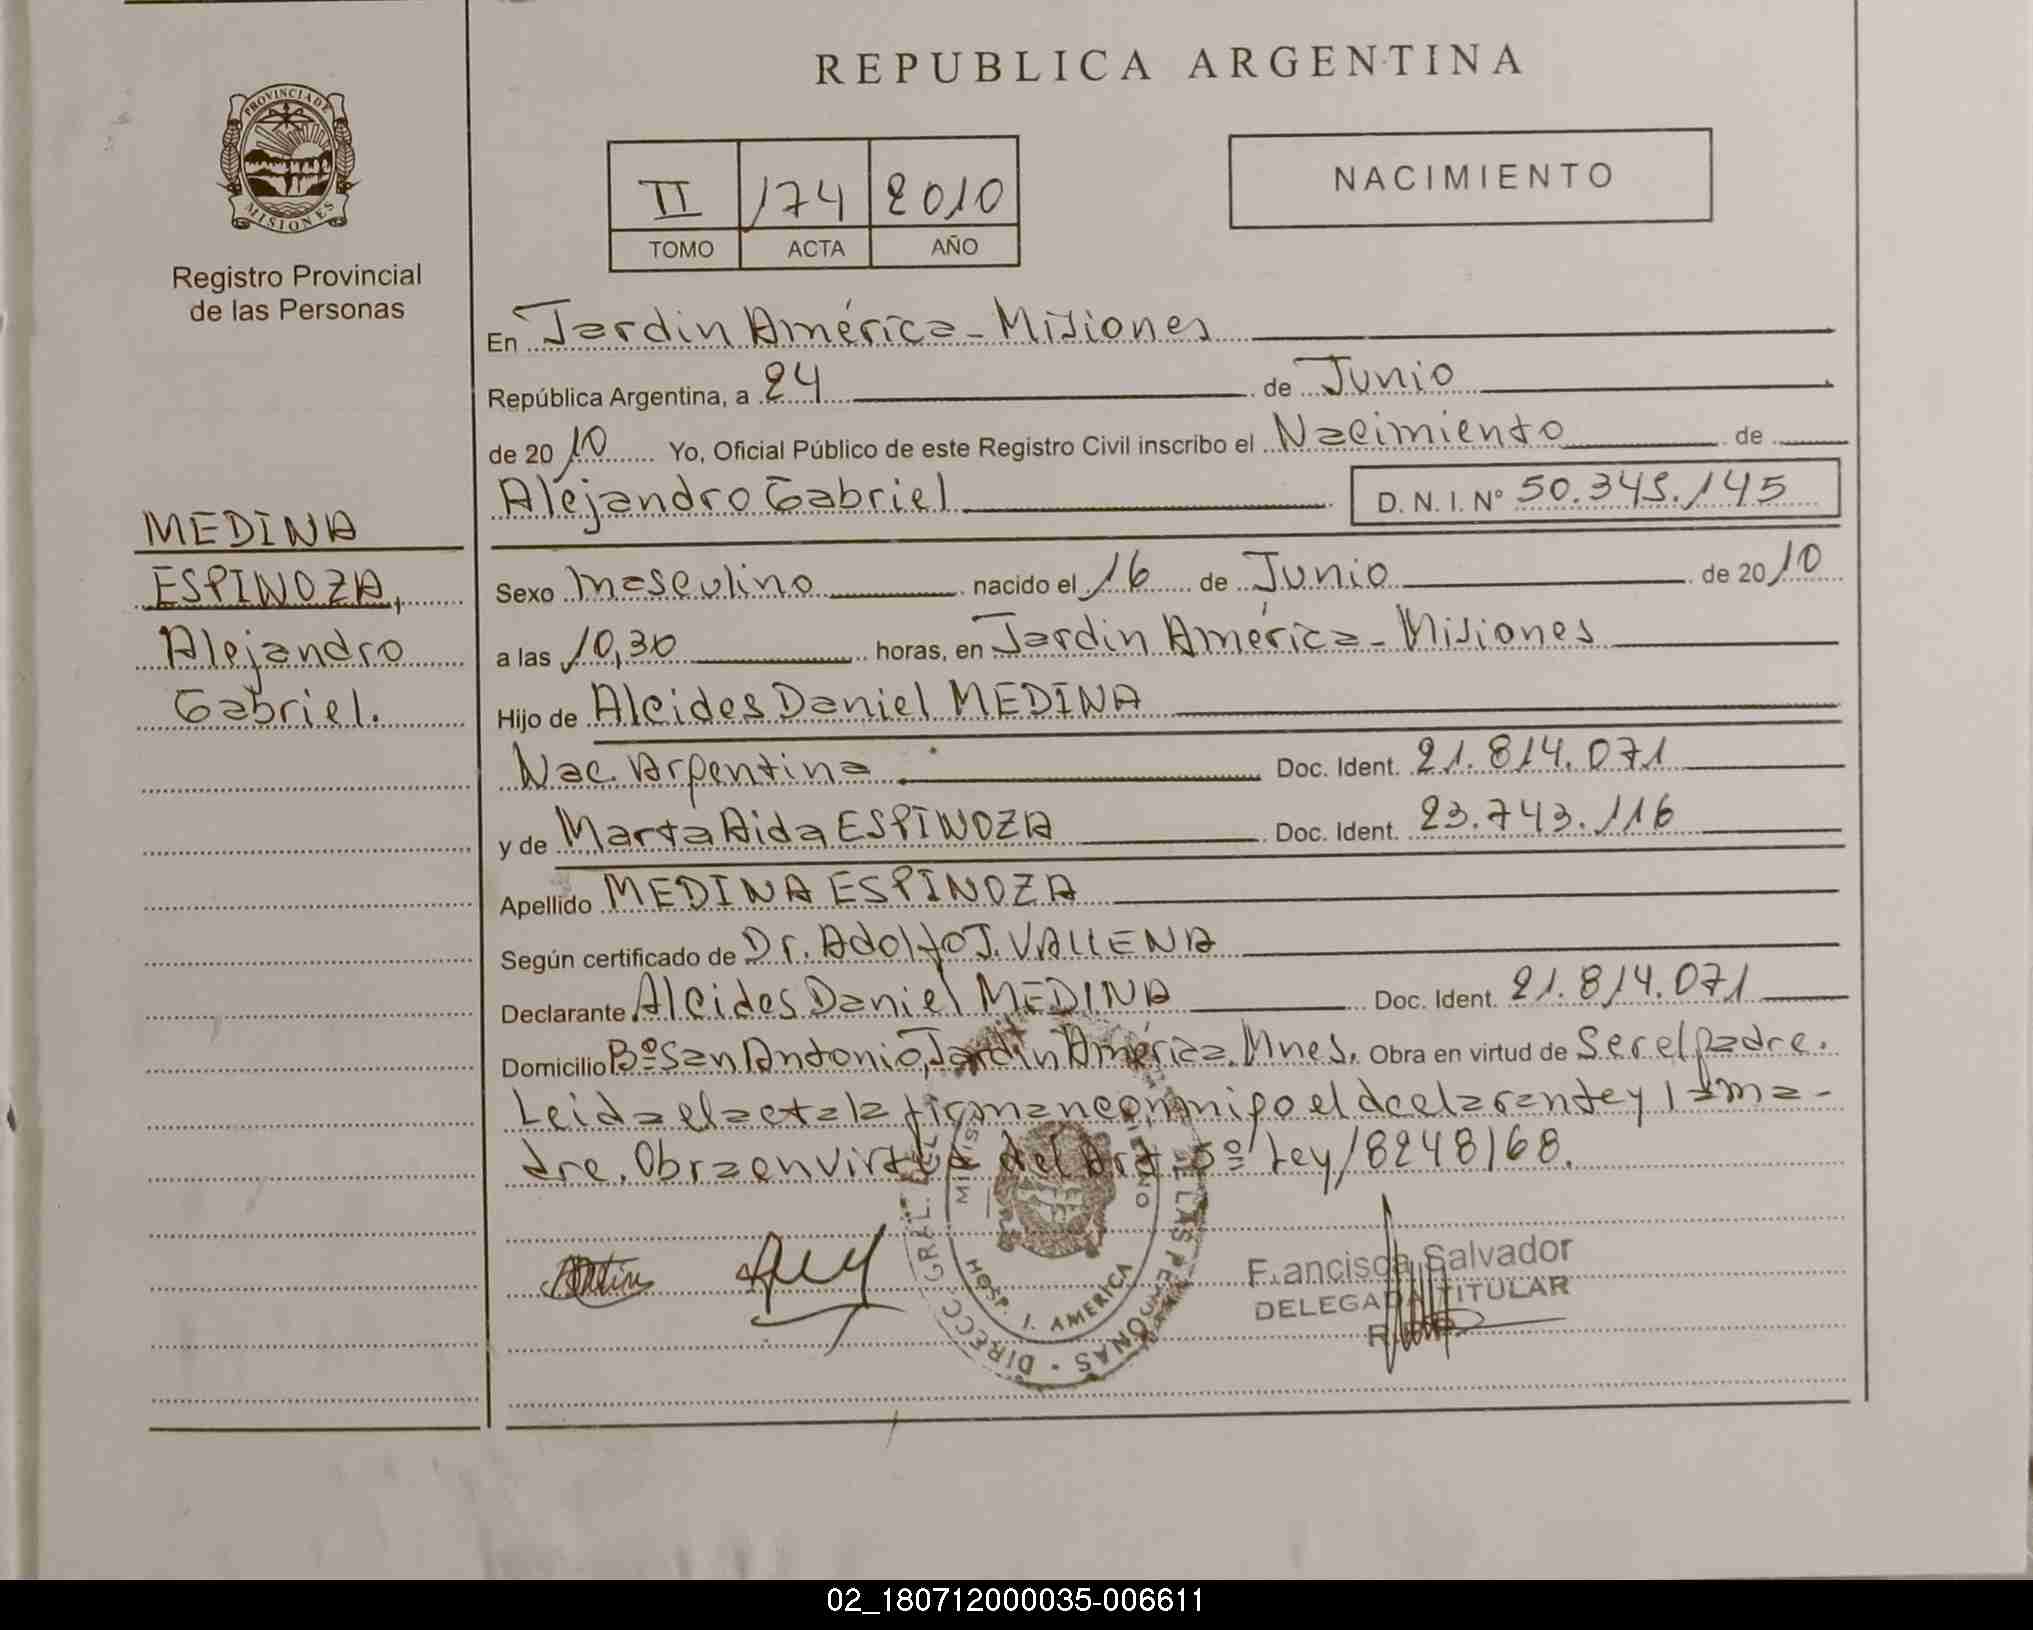 REPUBLICA ARGENTINA
PROVINCIA DE
MISIONES
Registro Provincial
de las Personas
II 174 2010
TOMO ACTA AÑO
NACIMIENTO
En Jardin América - Misiones
República Argentina, a 24 de Junio
de 2010 Yo, Oficial Público de este Registro Civil inscribo el Nacimiento de
Alejandro Gabriel D. N. I. N° 50.345.145
MEDINA
ESPINOZA,
Alejandro
Gabriel.
Sexo masculino nacido el 16 de Junio de 2010
a las 10,30 horas, en Jardin América - Misiones
Hijo de Alcides Daniel MEDINA
Nac. Argentina Doc. Ident. 21.814.071
y de Marta Aida ESPINOZA Doc. Ident. 23.743.116
Apellido MEDINA ESPINOZA
Según certificado de Dr. Adolfo J. VALLENA
Declarante Alcides Daniel MEDINA Doc. Ident. 21.814.071
Domicilio Bº San Antonio, Jardin América. Mnes. Obra en virtud de Ser el padre.
Leida el acta la firman conmigo el declarante y la ma-
dre. Obra en virtud del Art. 5º Ley 18248/68.
DIRECC. GRAL. DEL LAS PERSONAS
HOSP. J. AMERICA
Francisca Salvador
DELEGADA TITULAR
02_180712000035-006611